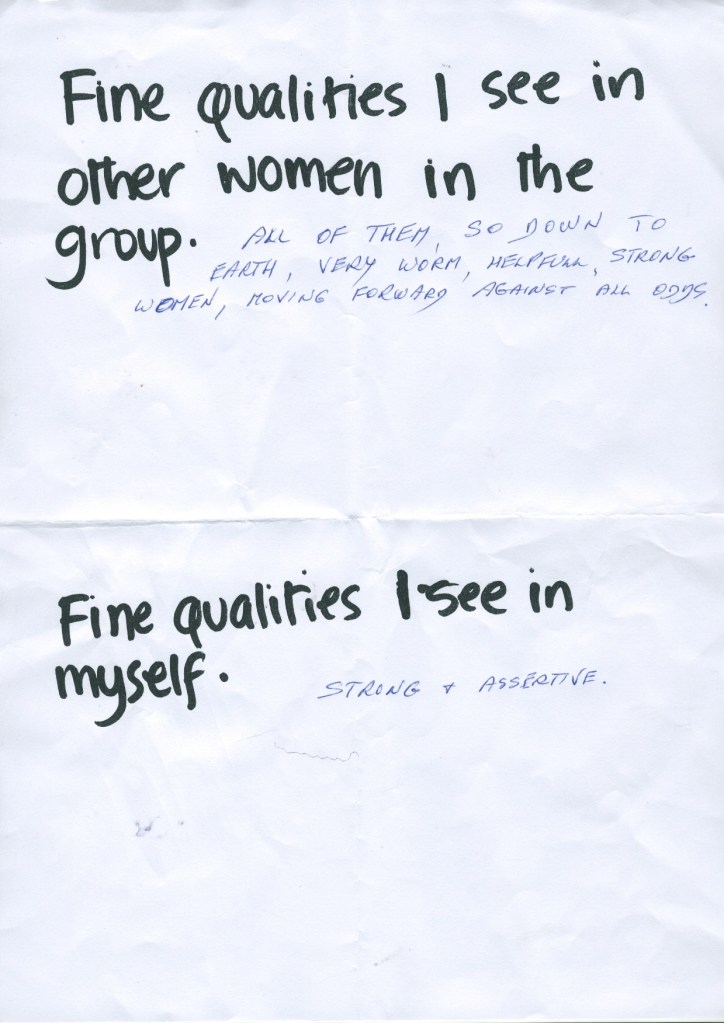 Fine qualities I see in
other women in the
group. ALL OF THEM, SO DOWN TO
EARTH, VERY WORM, HELPFULL, STRONG
WOMEN, MOVING FORWARD AGAINST ALL ODDS.
Fine qualities I see in
myself.
STRONG + ASSERTIVE.